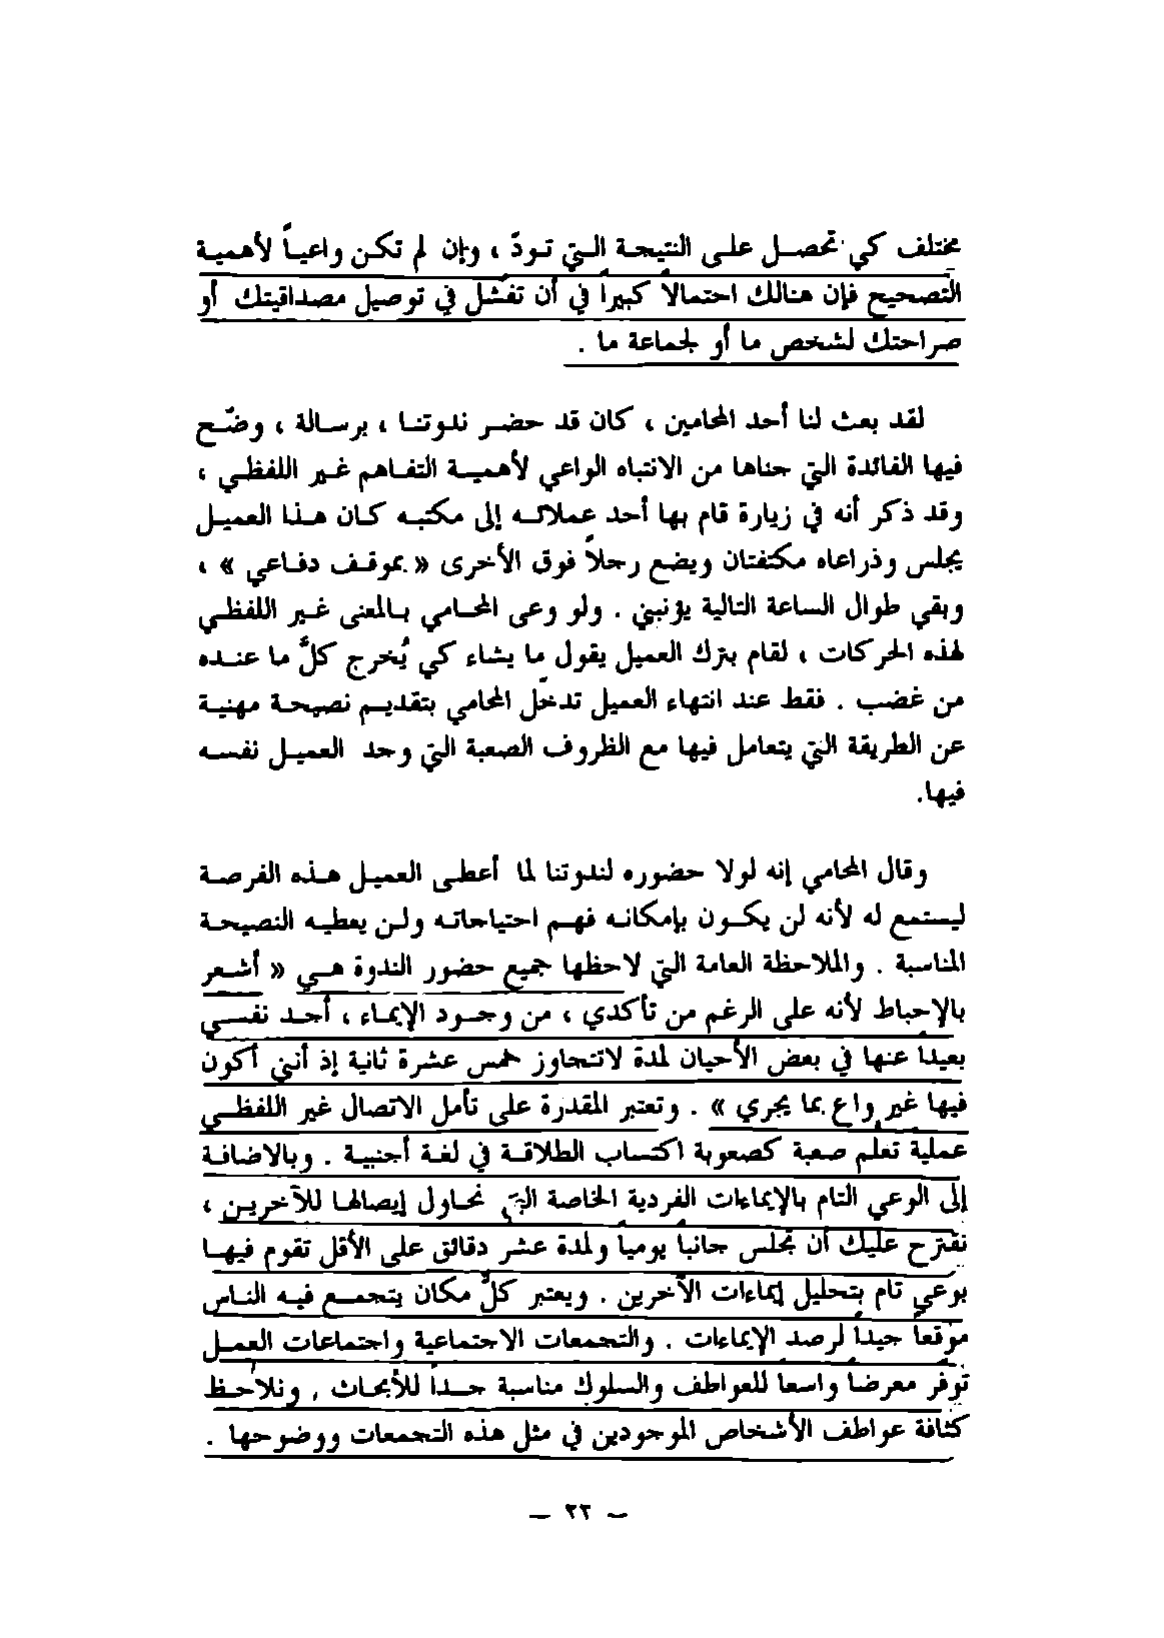 مختلف كي تحصل على النتيجة التي تودّ ، وإن لم تكن واعياً لأهمية
التصحيح فإن هنالك احتمالاً كبيراً في أن تفشل في توصيل مصداقيتك أو
صراحتك لشخص ما أو لجماعة ما .
لقد بعث لنا أحد المحامين ، كان قد حضر ندوتنا ، برسالة ، وضّح
فيها الفائدة التي جناها من الانتباه الواعي لأهمية التفاهم غير اللفظي ،
وقد ذكر أنه في زيارة قام بها أحد عملائه إلى مكتبه كان هذا العميل
يجلس وذراعاه مكتفتان ويضع رجلاً فوق الأخرى « بموقف دفاعي » ،
وبقي طوال الساعة التالية يؤنبني . ولو وعى المحامي بالمعنى غير اللفظي
لهذه الحركات ، لقام بترك العميل يقول ما يشاء كي يُخرج كلَّ ما عنده
من غضب . فقط عند انتهاء العميل تدخّل المحامي بتقديم نصيحة مهنية
عن الطريقة التي يتعامل فيها مع الظروف الصعبة التي وجد العميل نفسه
فيها.
وقال المحامي إنه لولا حضوره لندوتنا لما أعطى العميل هذه الفرصة
ليستمع له لأنه لن يكون بإمكانه فهم احتياجاته ولن يعطيه النصيحة
المناسبة . والملاحظة العامة التي لاحظها جميع حضور الندوة هي « أشعر
بالإحباط لأنه على الرغم من تأكدي ، من وجود الإيماء ، أجد نفسي
بعيداً عنها في بعض الأحيان لمدة لاتتجاوز خمس عشرة ثانية إذ أنني أكون
فيها غير واع بما يجري » . وتعتبر المقدرة على تأمل الاتصال غير اللفظي
عملية تعلم صعبة كصعوبة اكتساب الطلاقة في لغة أجنبية . وبالاضافة
إلى الوعي التام بالإيماءات الفردية الخاصة التي نحاول إيصالها للآخرين ،
نقترح عليك أن تجلس جانباً يومياً ولمدة عشر دقائق على الأقل تقوم فيها
بوعي تام بتحليل إيماءات الآخرين . ويعتبر كلُّ مكان يتجمع فيه الناس
موقعاً جيداً لرصد الإيماءات . والتجمعات الاجتماعية واجتماعات العمل
توفر معرضاً واسعاً للعواطف والسلوك مناسبة جداً للأبحاث . ونلاحظ
كثافة عواطف الأشخاص الموجودين في مثل هذه التجمعات ووضوحها .
– ٢٢ –